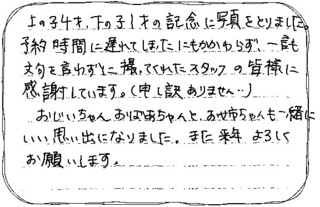 上の子4才、下の子1才の記念に写真をとりました。
予約時間に遅れてしまったにもかかわらず、一言も
文句を言わずに撮ってくれたスタッフの皆様に
感謝しています。(申し訳ありません…)
おじいちゃんおばあちゃんと、お姉ちゃんも一緒に
いい思い出になりました。また来年よろしく
お願いします。